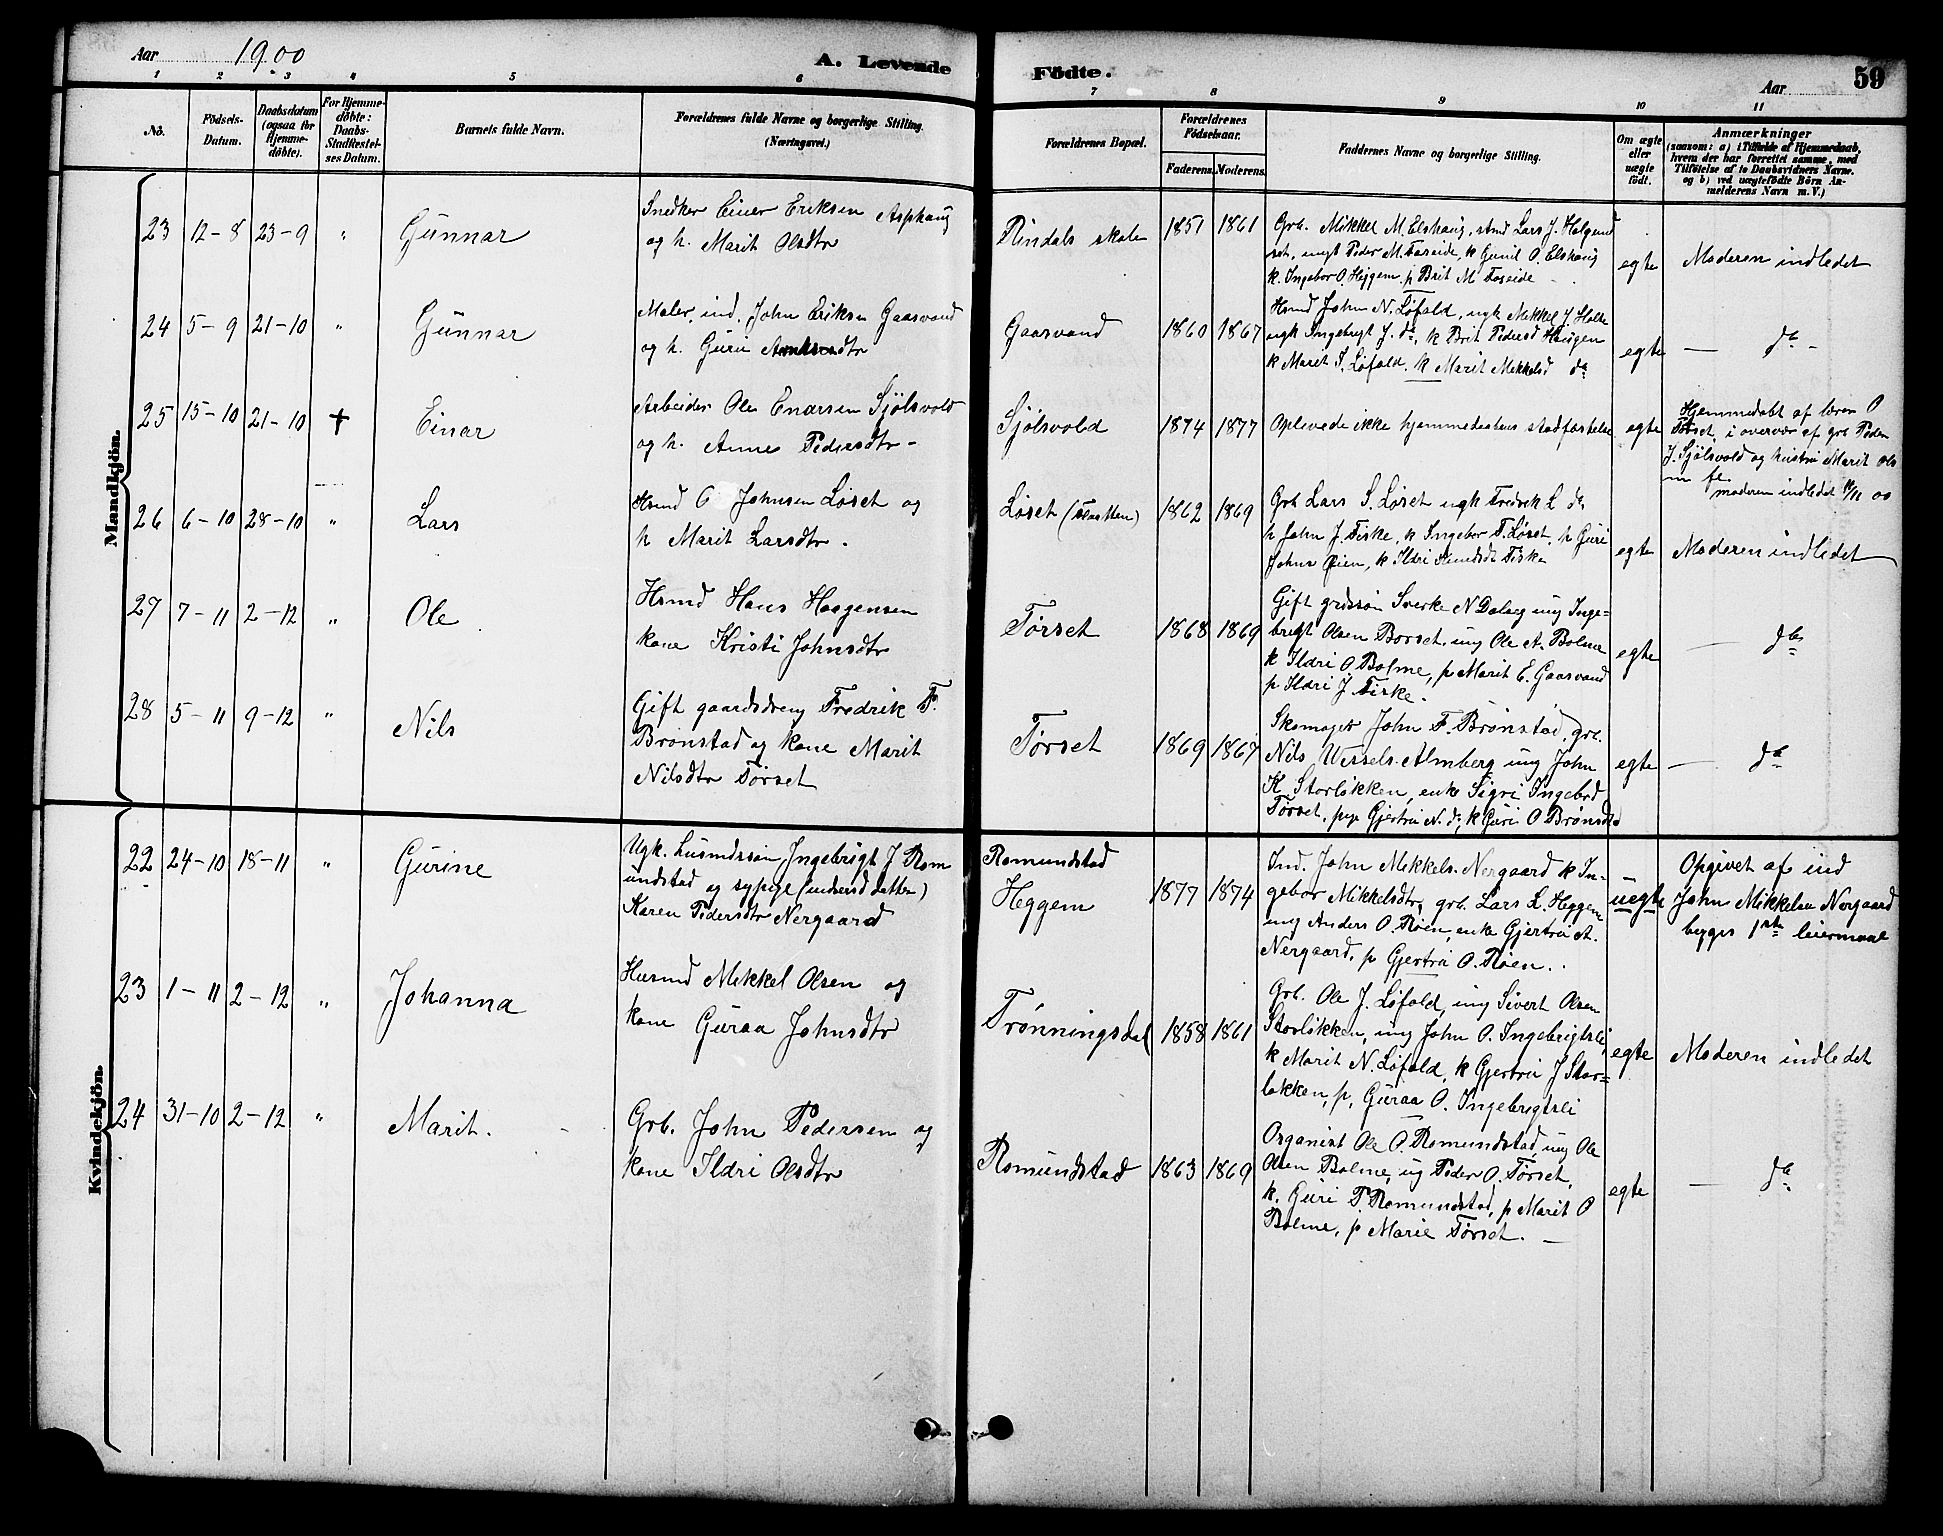 Aar 1900
A. Levende Födte.
Aar
59
1 2 3 4 5 6 7 8 9 10 11
No.
Födsels-
Datum.
Daabsdatum
(ogsaa for
Hjemme-
døbte).
For Hjemme-
døbte:
Daabs-
Stadfæstel-
ses Datum.
Barnets fulde Navn.
Forældrenes fulde Navne og borgerlige Stilling.
(Næringsvei.)
Forældrenes Bopæl.
Forældrenes
Födselsaar.
Faderens. Moderens.
Faddernes Navne og borgerlige Stilling.
Om ægte
eller
uægte
født.
Anmærkninger
(saasom: a) i Tilfælde af Hjemmedaab,
hvem der har forrettet samme, med
Tilføielse af to Daabsvidners Navne.
og b) ved uægtefödte Börn An-
melderens Navn m. V.)
Mandkjön.
23 12-8 23-9 " Gunnar
Snedker Einer Eriksen Asphaug
og h. Marit Olsdtr
Rindals skole 1851 1861
Grb. Mikkel M. Elshaug, smd Lars J. Halgund
set, ungk Peder M. Faseide, k Gunil O. Elshaug
k. Ingebor O. Heggem, p Brit M Faseide
egte Moderen indledet
24 5-9 21-10 " Gunnar
Maler, ind. John Eriksen Gaasvand
og h. Guri
Gaasvand 1860 1867
Hsmd John N. Løfald, ugk Mikkel J. Holte
ugk Ingebrigt J. do, k Brit Pedersd Haugen
k Maret S. Løfald, k Marit Mikkelsd do
egte — do -
25 15-10 21-10 † Einar
Arbeider Ole Enarsen Sjölsvold
og h. Anne Pedersdtr -
Sjölsvold 1874 1877 Oplevede ikke hjemmedaabens stadfæstelse egte
Hjemmedøbt af lærer O
Tørset, i overvær af grb Peder
J. Sjölsvold og hustru Marit Ols
m fl.
moderen indledet 11/11 00
26 6-10 28-10 " Lars
Hsmd O Johnsen Løset og
h Marit Larsdtr.
Løset (Flaatten) 1862 1869
Grb Lars S. Løset ugk Fredrik L do
h John J. Fiske, k Ingebor F. Løset, p Guri
Johns Øien, k Ildri Fiske
egte Moderen indledet
27 7-11 2-12 " Ole
Hsmd Hans Haagensen
kone Kristi Johnsdtr
Tørset 1868 1869
Gift grdssøn Sverke N Dalseg ung Inge=
brigt Olsen Børset, ung Ole A. Bolme
k Ildri O Bolme, p Marit E. Gaasvand
p Ildri J Fiske.
egte — do
28 5-11 9-12 " Nils
Gift gaardsdreng Fredrik F.
Brønstad og kone Marit
Nilsdtr Tørset
Tørset 1869 1867
Skomager John F. Brønstad, grb.
Nils Wessels-Almberg ung John
K Storløkken, enke Sigri Ingebrd
Tørset, pige Gjertrü N. do, k Guri O Brønstad
egte — do
Kvindekjön.
22 24-10 18-11 " Gurine
Ugk. husmdssøn Ingebrigt J Rom
undstad og sypige (indersd datter)
Karen Pedersdtr Nergaard
Romundstad
Heggem 1877 1874
Ind. John Mikkels. Nergaard k In-
gebor Mikkelsdtr, grb. Lars L. Heggem
ung Anders O. Røen, enke Gjertrü A.
Nergaard, p Gjertrü O. Røen.
uegte
Opgivet af ind
John Mikkelsen Nergaard
begges 1ste leiermaal
23 1-11 2-12 " Johanna
Husmd Mikkel Olsen og
kone Guraa Johnsdtr
Trønningsdal 1858 1861
Grb. Ole J. Løfald, ung Sivert Olsen
Storløkken, ung John O. Ingebrigtsli,
k Marit N. Løfald, k Gjertrü J Stor=
løkken, p, Guraa O. Ingebrigtsli
egte Moderen indledet
24 31-10 2-12 " Marit.
Grb. John Pedersen og
kone Ildri Olsdtr
Romundstad 1863 1869
Organist Ole O. Romundstad, ung Ole
Olsen Bolme, ug Peder O. Tørset,
k. Guri P. Romundstad, p Marit O
Bolme, p Marie Tørset. —
egte — do